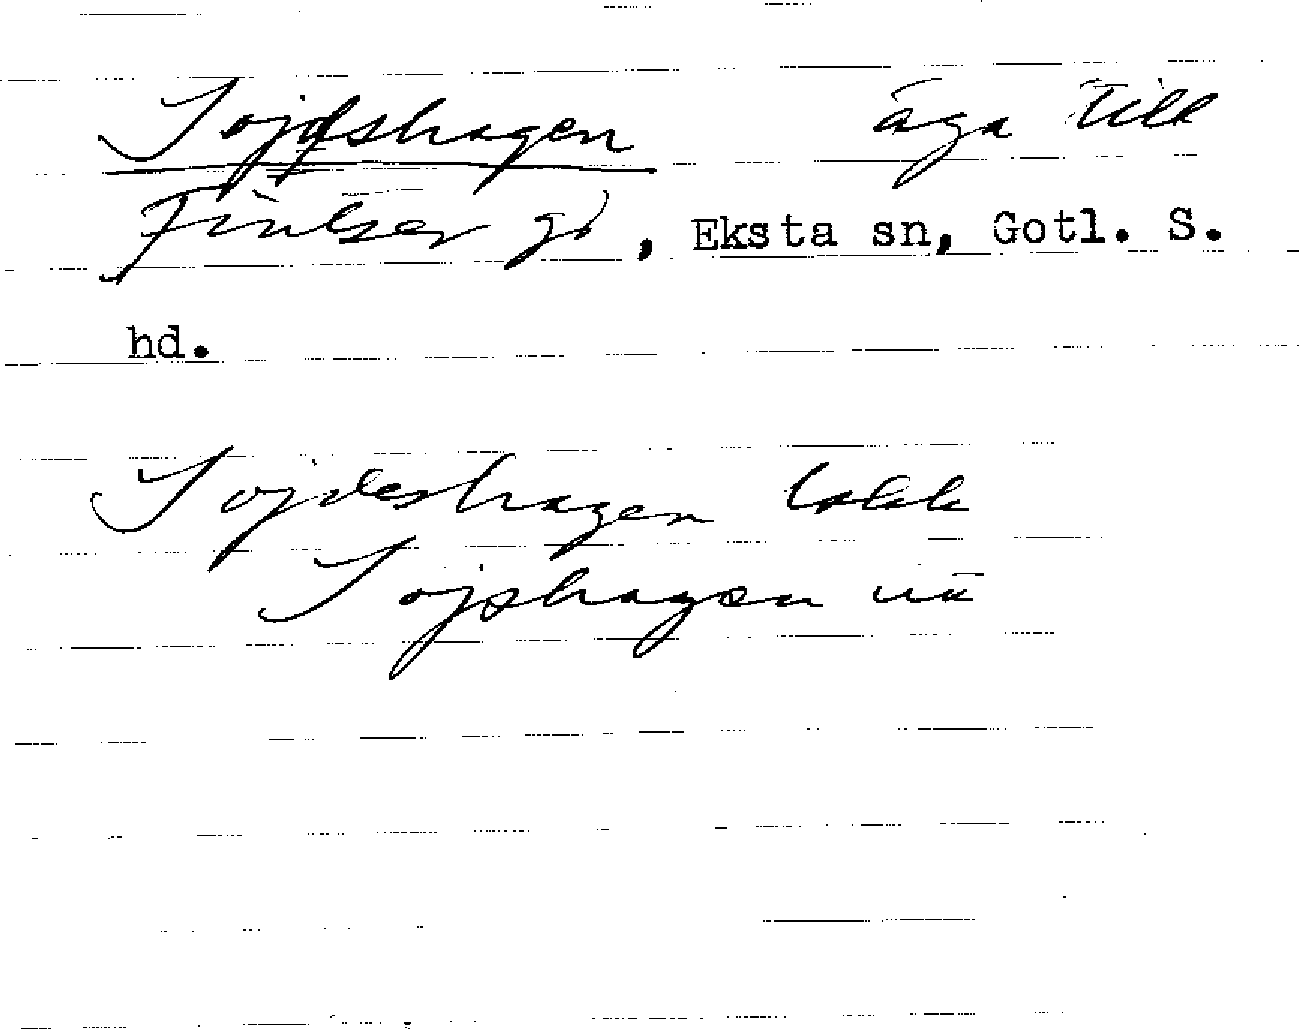 Sojdshagen äga till
Finlser gd, Eksta sn, Gotl. S.
hd.
Sojdeshagen
Sojshagen nu